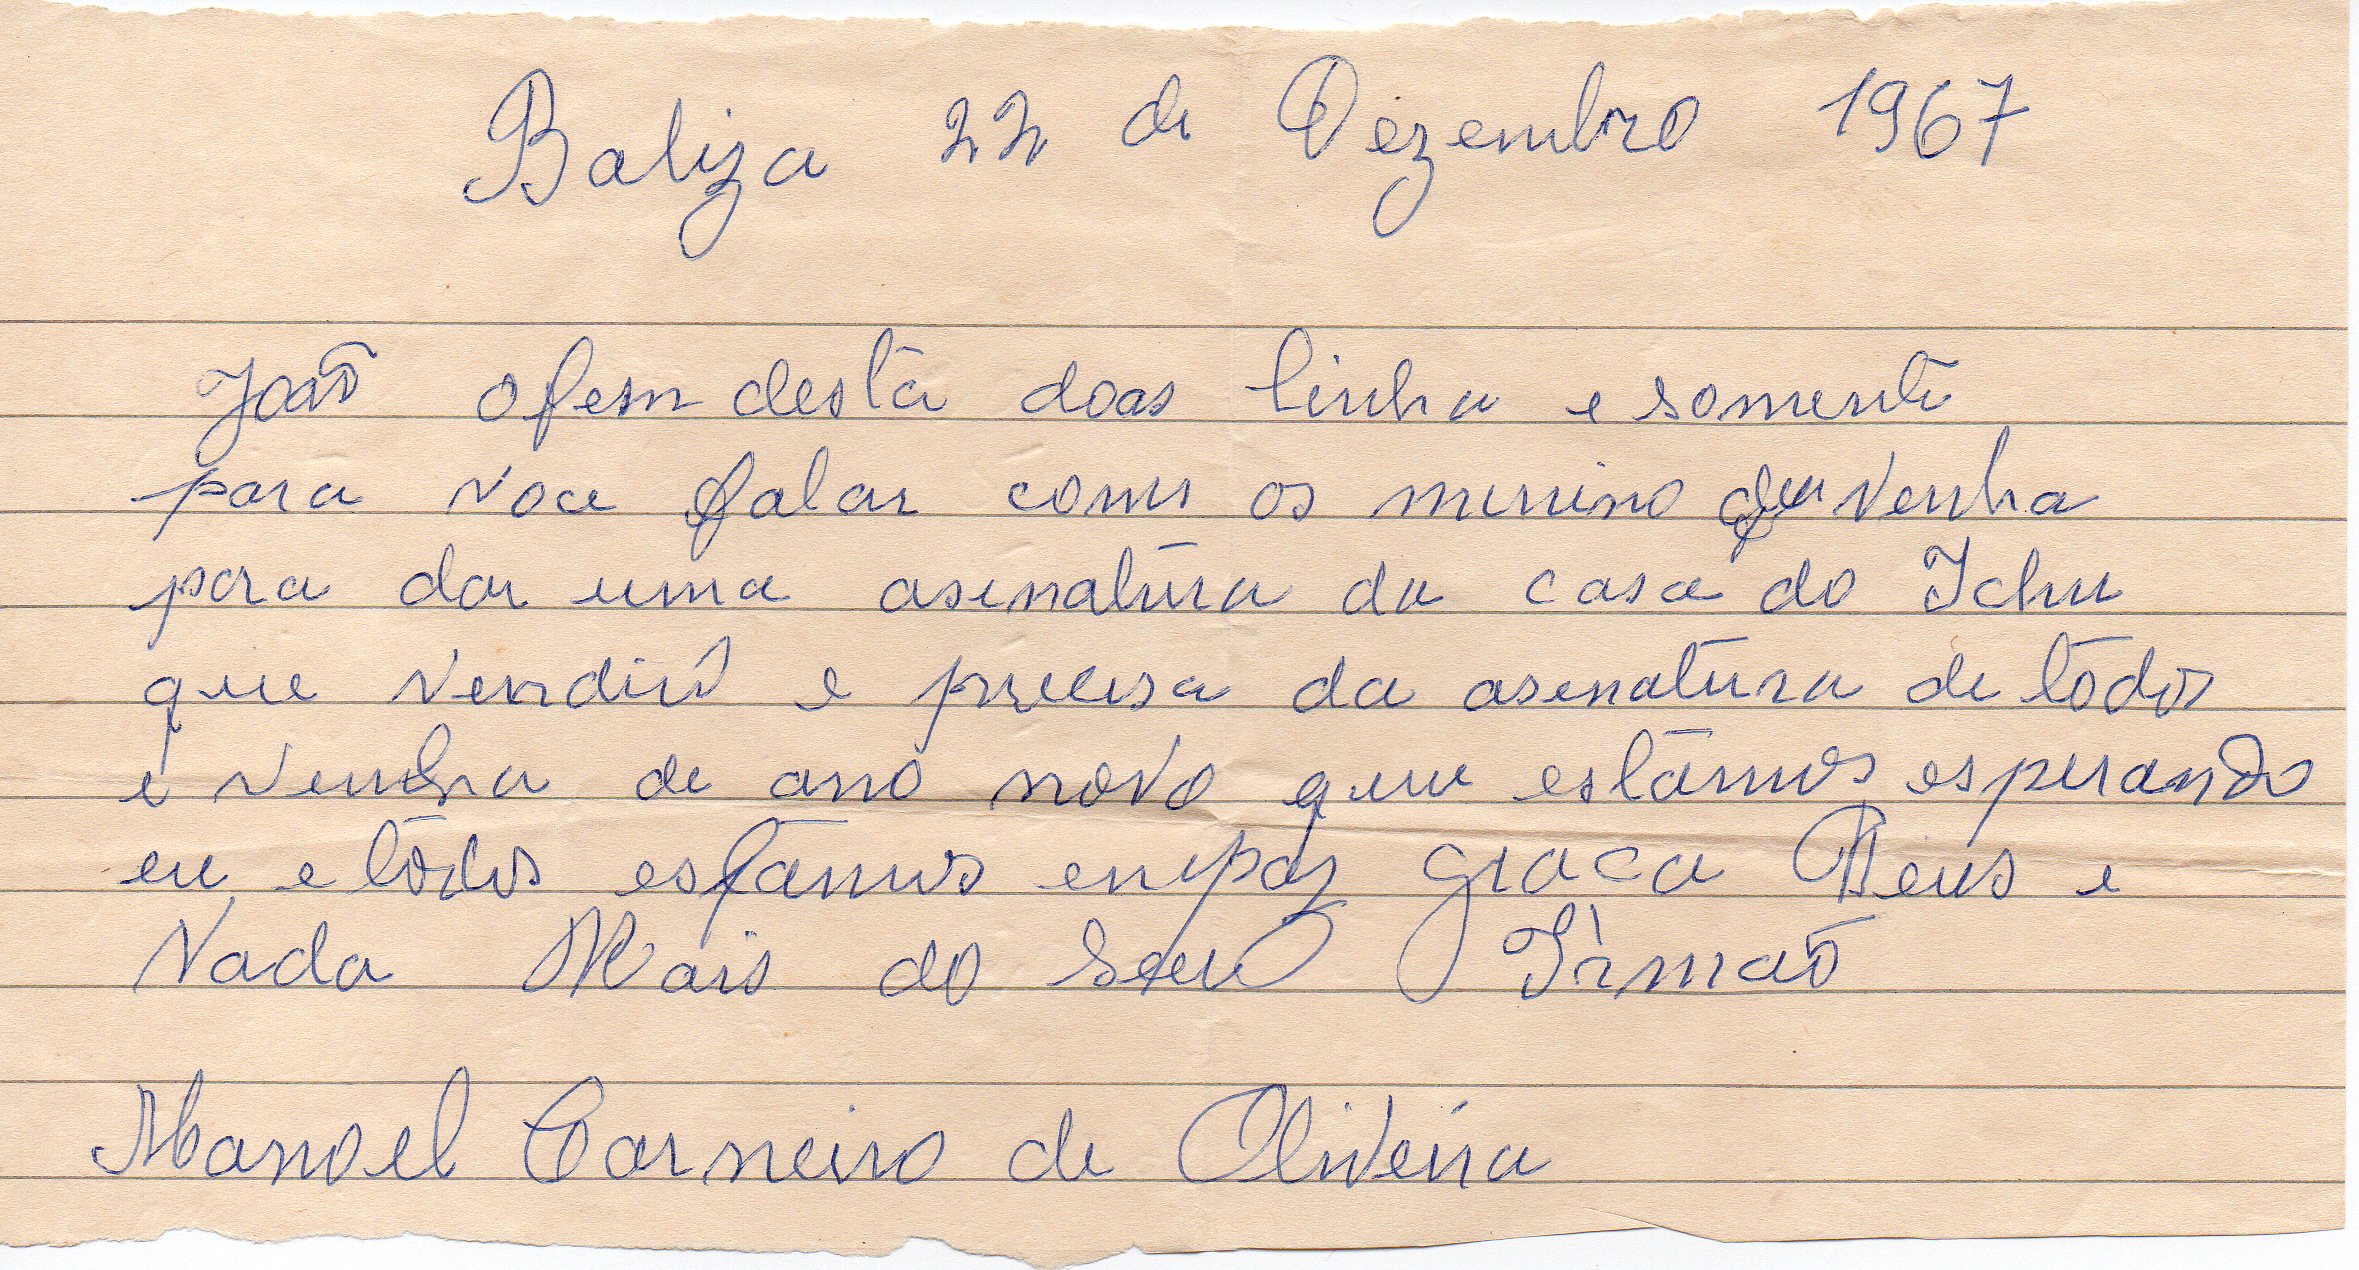 Baliza 22 de Dezembro 1967
João o fem desta doas linha e somente
para voce falar com os minino que venha
para dar uma asinatura da casa do Ichu
que vendiu e precisa da asinatura de todos
e venha de ano novo que estamos esperando
eu e todos estamos em paz graca Deus e
Nada Mais do seu Irmão
Manoel Carneiro de Oliveira